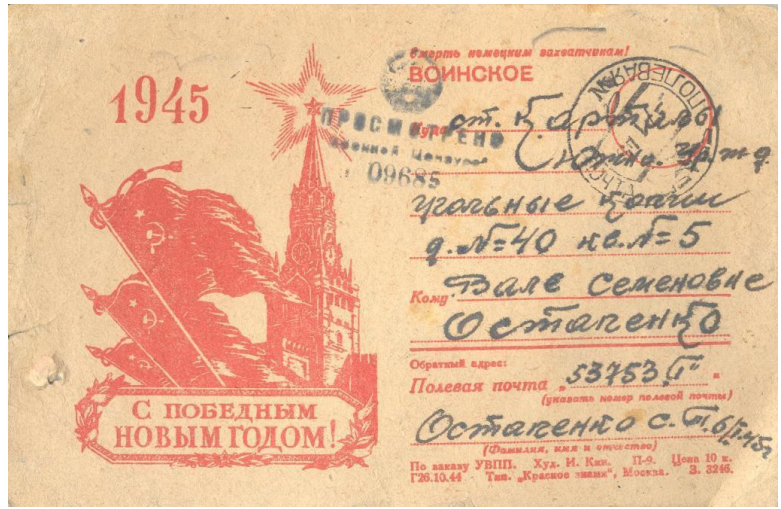 1945
С ПОБЕДНЫМ
НОВЫМ ГОДОМ!
Смерть немецким захватчикам!
ВОИНСКОЕ
ПРОСМОТРЕНО
Военной Цензурой
09685
ПОЛЕВАЯ
Куда ст. Карталы
Южно. Ур. ж д.
угольные копи
д. №=40 кв. №=5
Кому Вале Семеновне
Остапенко
Обратный адрес:
Полевая почта „53753 "
(указать номер полевой почты)
Остапенко С.
(Фамилия, имя и отчество)
По заказу УВПП. Худ. И. Кин. П-9. Цена 10 к.
Г26.10.44 Тип. „Красное знамя", Москва. З. 3246.